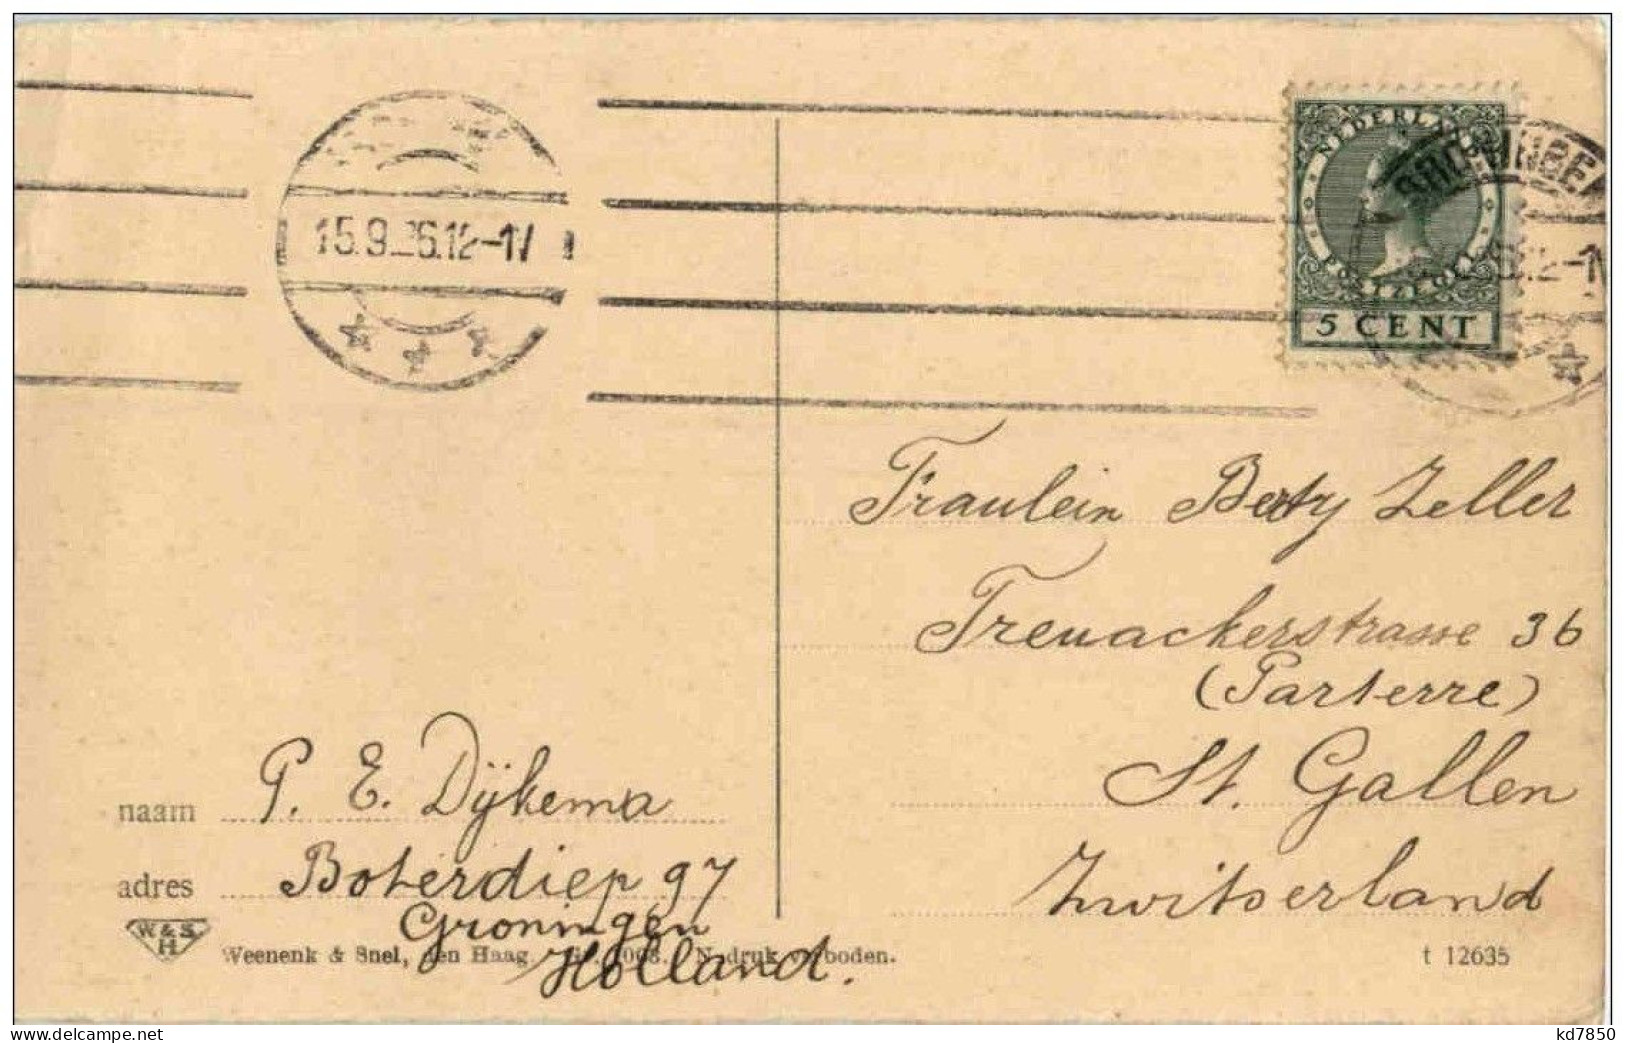 NEDERLAND
POSTZEGEL
5 CENT
15.9
Fräulein Berty Zeller
Treuackerstrasse 36
(Parterre)
St. Gallen
Zwitserland
naam P. E. Dijkema
adres Boterdiep 97
Groningen
Holland.
W & S
H
Weenenk & Snel, den Haag. Nadruk verboden.
t 12635
www.delcampe.net
kd7850